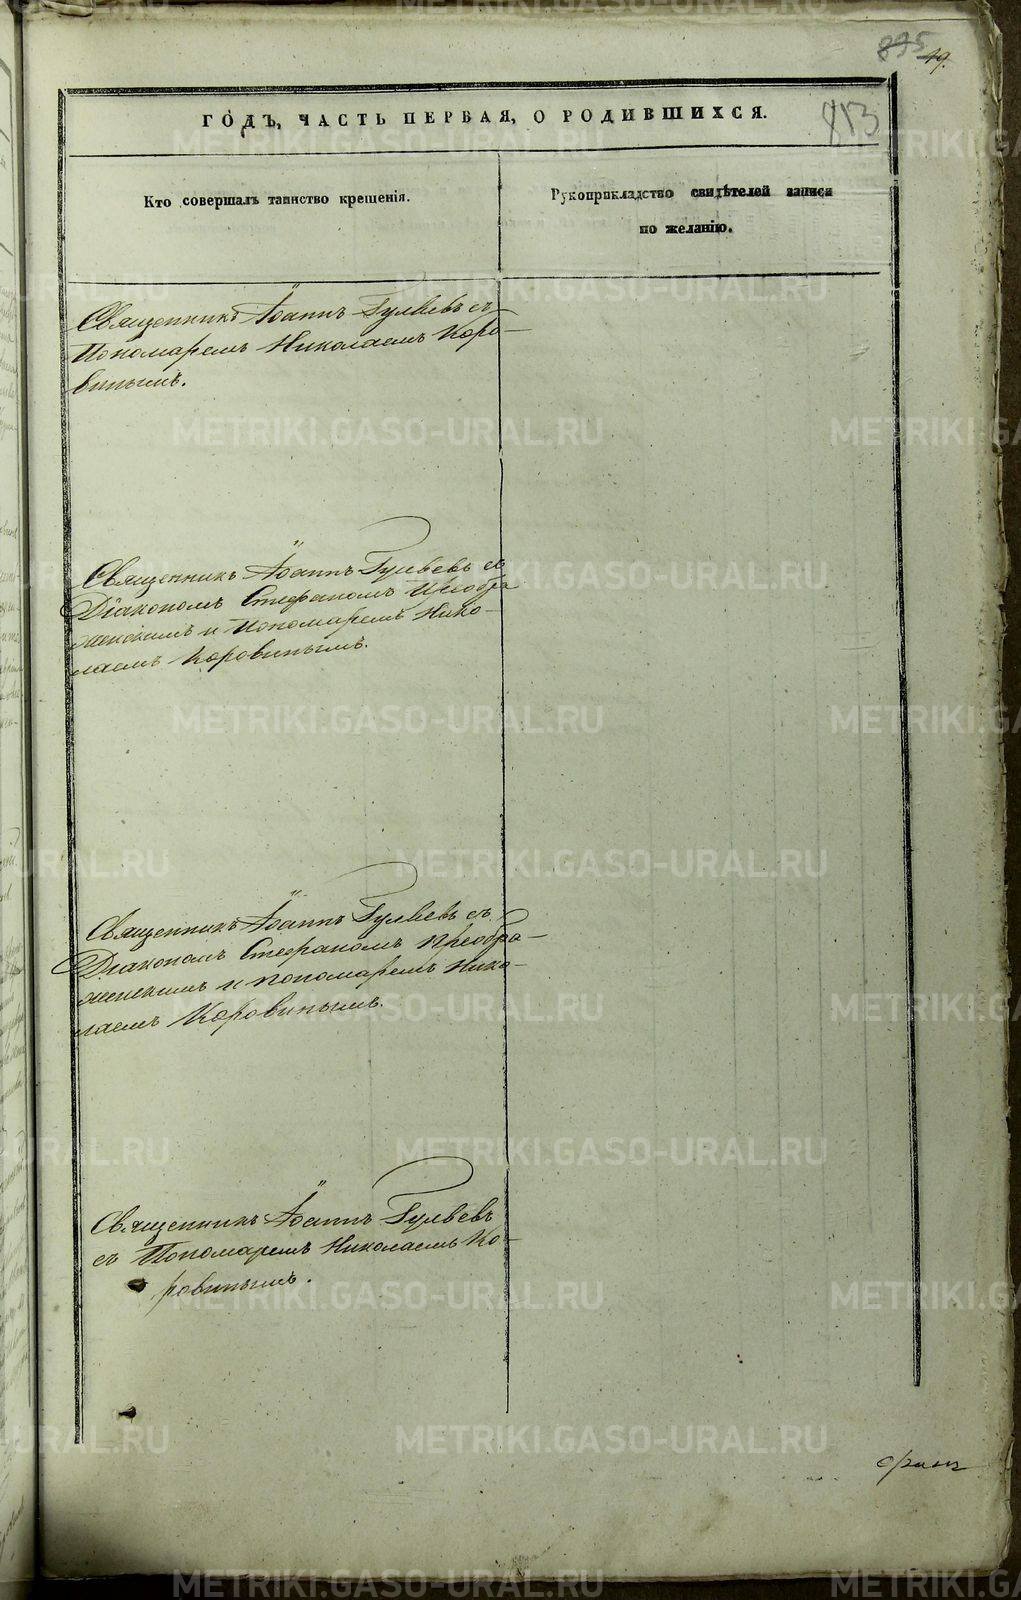 895 19.
853
ГОДЪ, ЧАСТЬ ПЕРВАЯ, О РОДИВШИХСЯ.
Кто совершалъ таинство крещенія.
Рукоприкладство свидѣтелей записи
по желанію.
Священникъ Іоаннъ Гуляевъ съ
Пономаремъ Николаемъ Коро-
винымъ.
Священникъ Іоаннъ Гуляевъ съ
Діакономъ Стефаномъ Преобра
женскимъ и Пономаремъ Нико-
лаемъ Коровинымъ.
Священникъ Іоаннъ Гуляевъ съ
Діакономъ Стефаномъ Преобра-
женскимъ и пономаремъ Нико-
лаемъ Коровинымъ.
Священникъ Іоаннъ Гуляевъ
съ Пономаремъ Николаемъ Ко-
ровинымъ.
METRIKI.GASO-URAL.RU